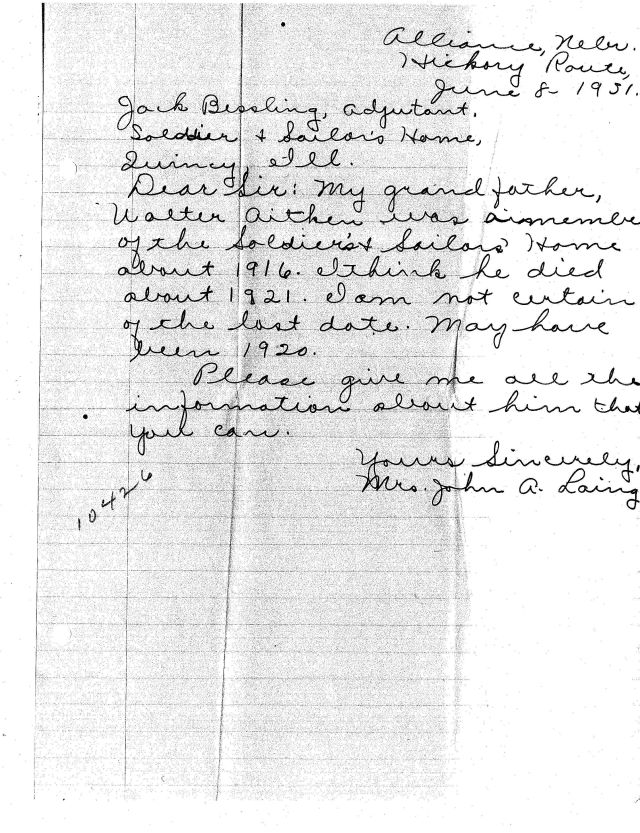 Alliance, Nebr.
Hickory Route,
June 8 - 1931.
Jack Bessling, adjutant.
Soldier & Sailor's Home,
Quincy, Ill.
Dear Sir: My grandfather,
Walter Aitken was a membe
of the Soldier's & Sailors' Home
about 1916. I think he died
about 1921. I am not certain
of the last date. May have
been 1920.
Please give me all the
information about him that
you can.
Yours Sincerely,
Mrs. John A. Laing
10426